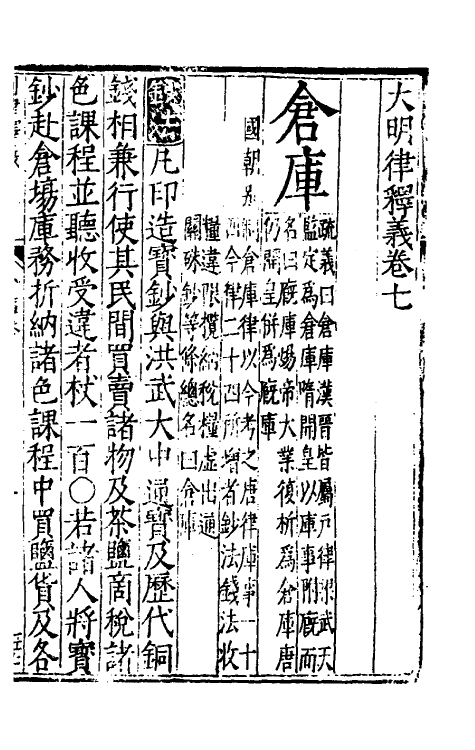 大明律釋義卷七
倉庫
疏義曰倉庫漢晉皆屬戶律梁武天
監定為倉庫隋開皇以庫事附廄而
名曰廄庫煬帝大業復析為倉庫唐
仍開皇併為廄庫
國朝倉庫律以今考之唐律庫事一十
四今律二十四所增者鈔法錢法收
糧違限攬納稅糧虛出通
關硃鈔等條總名曰倉庫
鈔法凡印造寶鈔與洪武大中通寶及歷代銅
錢相兼行使其民間買賣諸物及茶鹽商稅諸
色課程並聽收受違者杖一百○若諸人將寶
鈔赴倉場庫務折納諸色課程中買鹽貨及各